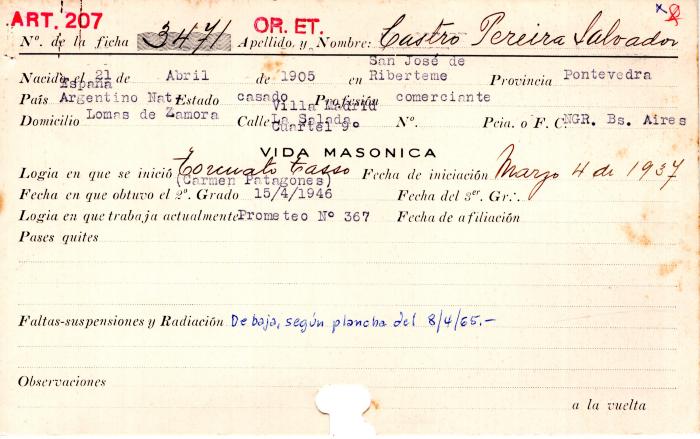 ART. 207
OR. ET.
Nº. de la ficha 3471 Apellido y Nombre: Castro Pereira Salvador
Nacido el 21 de Abril de 1905 en San José de Riberteme Provincia Pontevedra
España
País Argentino Nat. Estado casado Profesión comerciante
Domicilio Lomas de Zamora Calle Villa Madrid La Salada Cuartel 9º Nº. Pcia. o F. C. NGR. Bs. Aires
VIDA MASONICA
Logia en que se inició Torcuato Tasso Fecha de iniciación Marzo 4 de 1937
(Carmen Patagones)
Fecha en que obtuvo el 2º. Grado 15/4/1946 Fecha del 3er. Gr∴.
Logia en que trabaja actualmente Prometeo Nº 367 Fecha de afiliación
Pases quites
Faltas-suspensiones y Radiación De baja, según plancha del 8/4/65.-
Observaciones
a la vuelta